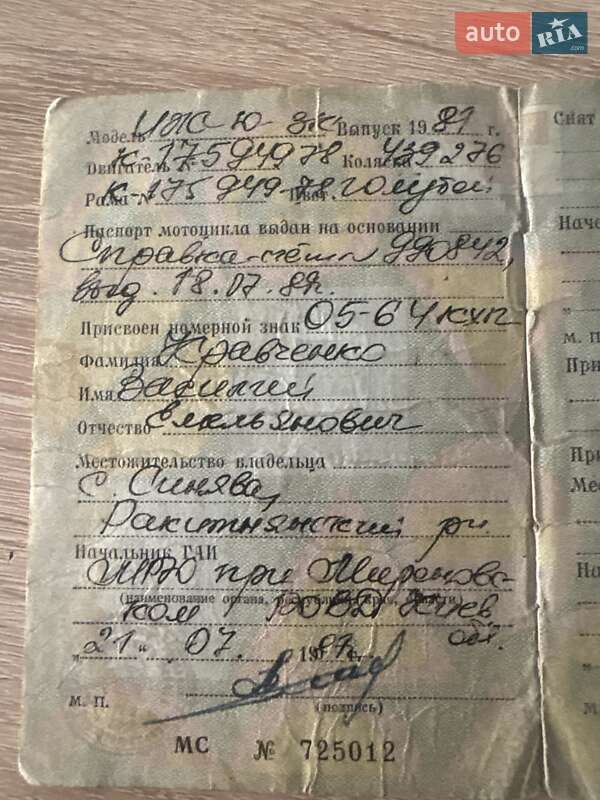 auto RIA.com
Модель ИЖ Ю-3К Выпуск 1987 г.
Двигатель № К-1759497 Коляска 439276
Рама № К-1759497 Цвет голубой
Паспорт мотоцикла выдан на основании
Справка-счёт 990842,
выд. 18.07.87.
Присвоен номерной знак 05-64 КХП
Фамилия Кравченко
Имя Василий
Отчество Емельянович
Местожительство владельца
с Синява,
Ракитнянский р-н
Начальник ГАИ
МРЭО при Миронов-
(наименование органа, республики, края, области)
ском РОВД Киев
обл.
„21“ 07. 1987 г.
М. П.
(подпись)
МС № 725012
Снят
Наче
„
м. п
При
При
Мес
На
„
М